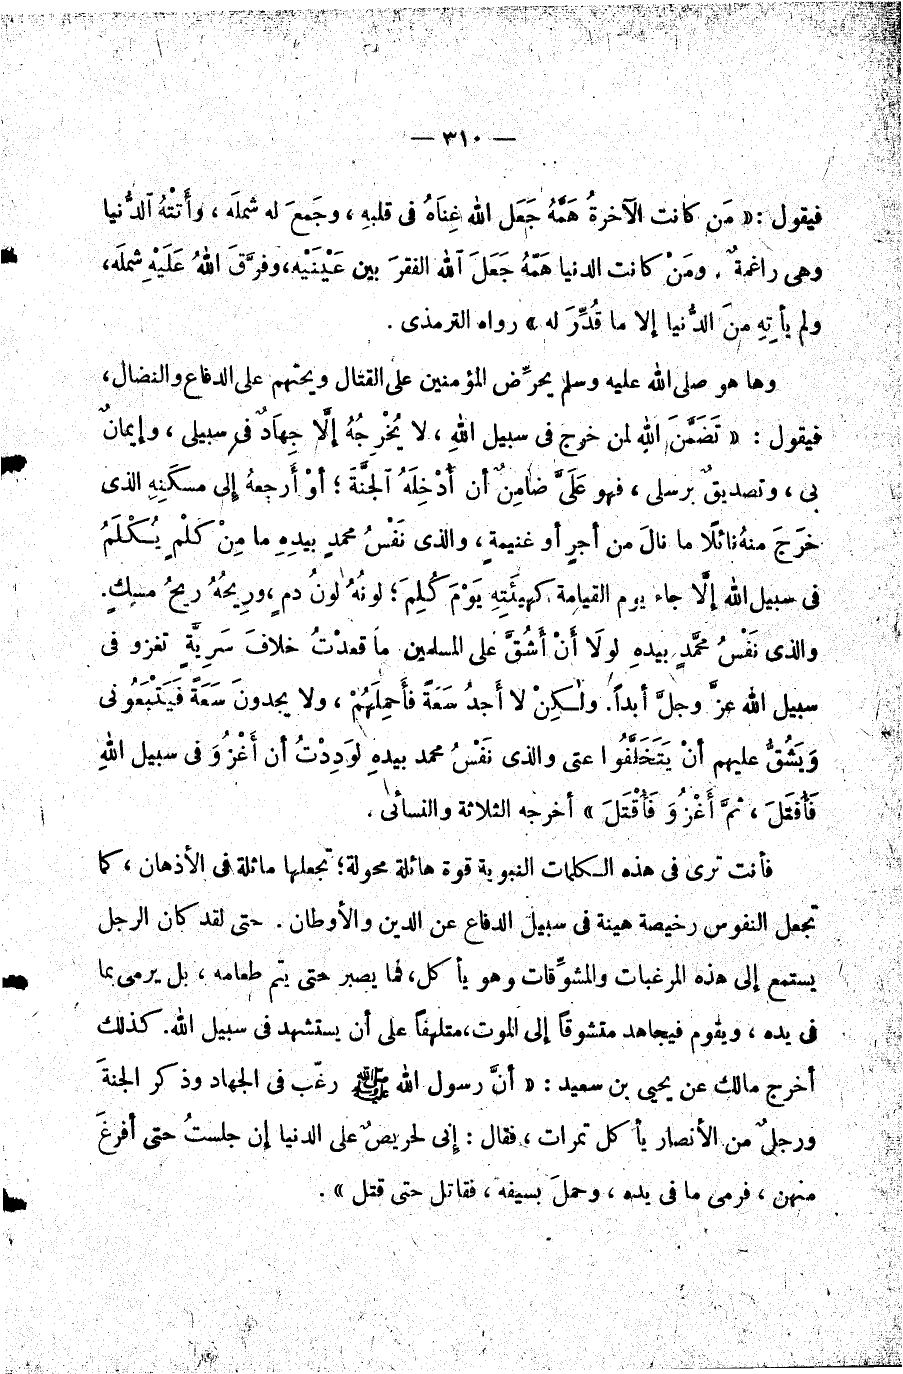 — ٣١٠ —
فيقول : « مَن كانت الآخرةُ هَمَّهُ جَعَل الله غِنَاهُ فى قلبهِ ، وجَمعَ له شملَه ، وأَتتْهُ آلدُّنيا
وهى راغمةٌ . ومَنْ كانت الدنيا هَمّهُ جَعَلَ آلله الفقرَ بين عَيْنَيْهِ،وفرَّقَ اللهُ عَلَيْهِ شملَه،
ولم يأتِهِ منَ الدُّنيا إلا ما قُدِّرَ له » رواه الترمذى .
وها هو صلى الله عليه وسلم يحرِّض المؤمنين على القتال ويحثهم على الدفاع والنضال،
فيقول : « تَضَمَّنَ اللهُ لمن خرج فى سبيل اللهِ ، لا يُخْرِجُهُ إلَّا جِهَادٌ فى سبيلى ، وإيمانٌ
بى ، وتصديقٌ برسلى ، فهو عَلَىَّ ضَامِنٌ أن أُدْخِلَهُ اَلجنَّةَ ؛ أوْ أَرجعهُ إلى مسكَنِهِ الذى
خرَجَ منهُ نائلًا ما نالَ من أجرٍ أو غنيمةٍ ، والذى نَفْسُ محمدٍ بيدِهِ ما مِنْ كَلْمٍ يُكْلَمُ
فى سبيل الله إلَّا جاء يوم القيامة كهيئَتِهِ يَوْمَ كُلِمَ ؛ لونُهُ لونُ دمٍ ،ورِيحُهُ ريحُ مسكٍ.
والذى نَفْسُ محَمَّدٍ بيدهِ لولَا أَنْ أَشُقَّ على المسلمين ما قعدْتُ خلافَ سَرِيَّةٍ تغزو فى
سبيل الله عزَّ وجلَّ أبداً. ولكِنْ لا أَجدُ سَعَةً فأَحمِلَهُمْ ، ولا يجدونَ سَعَةً فَيَتْبَعُونى
وَيَشُقُّ عليهم أنْ يَتَخَلَّفُوا عنى والذى نَفْسُ محمد بيدهِ لَوَدِدْتُ أن أَغْزُوَ فى سبيل اللهِ
فَأُقتَلَ ، ثمَّ أَغْزُوَ فَأُقْتَلَ » أخرجه الثلاثة والنسائى .
فأنت ترى فى هذه الكلمات النبوية قوة هائلة محولة؛ تجعلها ماثلة فى الأذهان ، كما
تجعل النفوس رخيصة هينة فى سبيل الدفاع عن الدين والأوطان . حتى لقد كان الرجل
يستمع إلى هذه المرغبات والمشوِّقات وهو يأكل، فما يصبر حتى يتم طعامه ، بل يرمى بما
فى يده ، ويقوم فيجاهد متشوقاً إلى الموت،متلهفاً على أن يستشهد فى سبيل الله. كذلك
أخرج مالك عن يحيى بن سعيد : « أنَّ رسول الله ﷺ رغّب فى الجهاد وذكر الجنةَ
ورجلٌ من الأنصار يأكل تمرات ، فقال : إنى لحريصٌ على الدنيا إن جلستُ حتى أفرغَ
منهن ، فرمى ما فى يده ، وحملَ بسيفه ، فقاتل حتى قتل » .